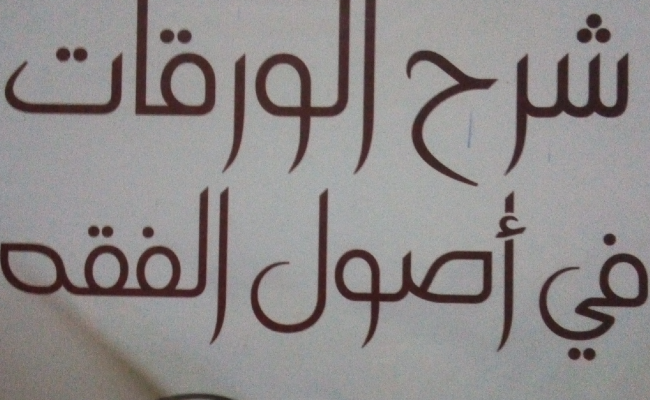 شرح الورقات
في أصول الفقه